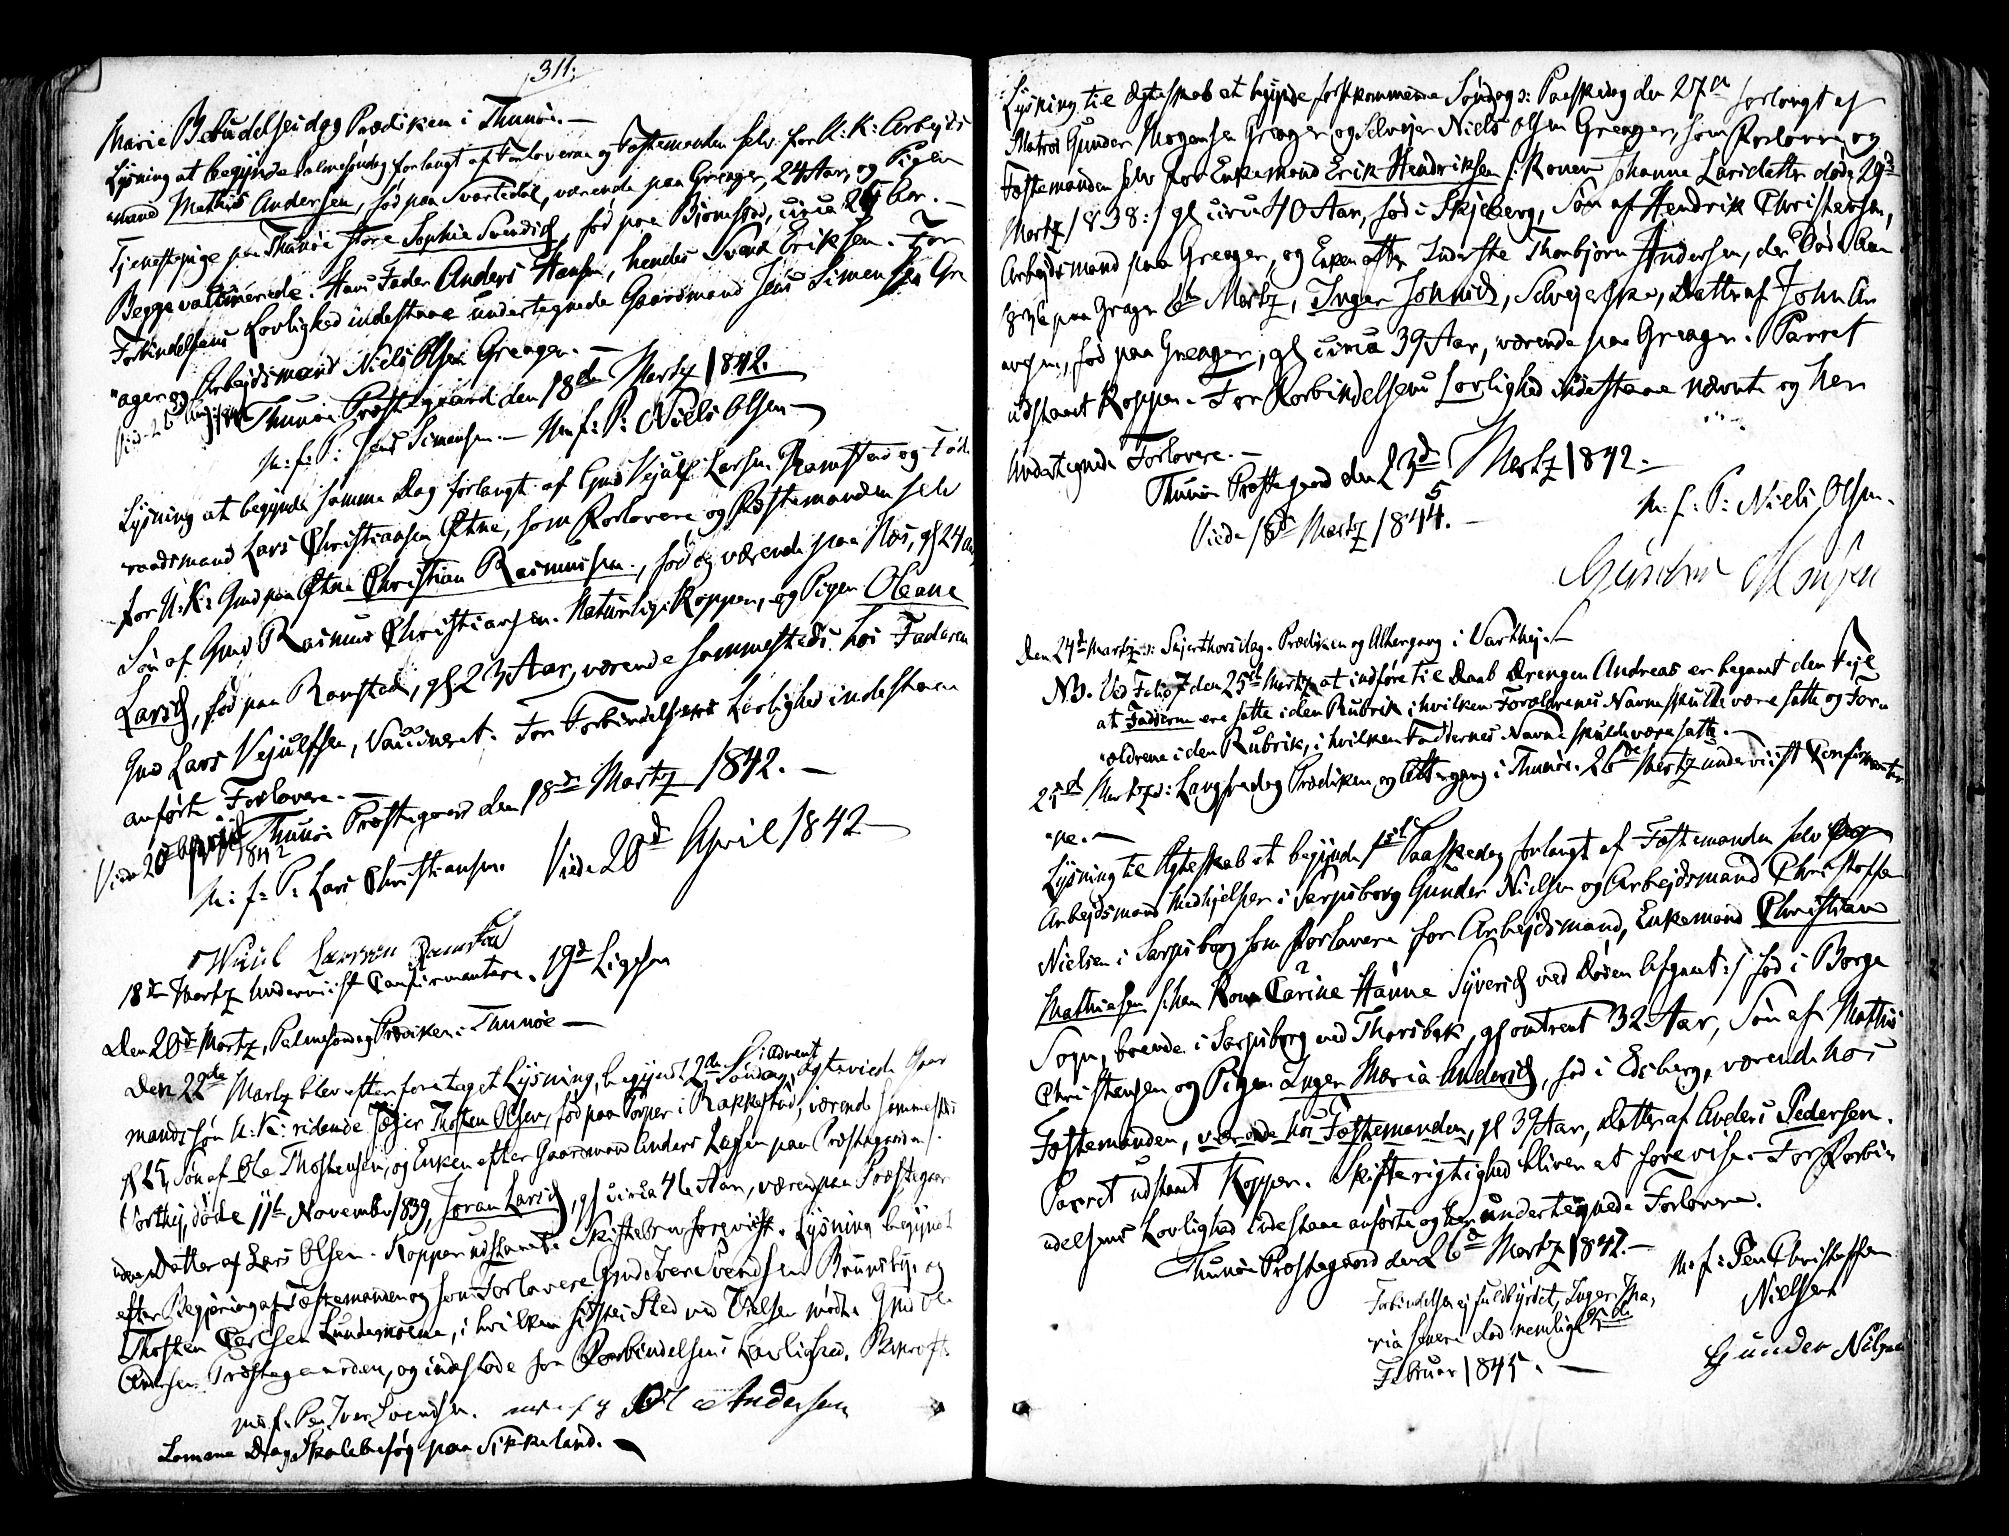 311.
Marie Bebudelsesdag Prædiken i Thunøe. —
Lysning at begynde Palmesøndag forlangt af Forloverne og Fæstemanden selv for U: K: Arbejds
mand Mathis Andersen, fød paa Svartedal, værende paa Greager, 24 Aar, og Pigen
Tjenestepige paa Thunøe Store Sophie Svendsd, fød paa Bjørnstad, circa 26 Ar. —
Begge vaccinerede. Hans Fader Anders Hansen, hendes Svend Eriksen. For
Forbindelsens Lovlighed indestaae undertegnede Gaardmand Jens Simensen Gre
ager og Arbejdsmand Niels Olsen Greager. —
Thunøe Præstegaard den 18de Martz 1842.
m: f: P: Jens Simensen. — m: f: P: Niels Olsen —
Lysning at begynde samme Dag forlangt af Gmd Vejulf Larsen Ramstad og
raadsmand Lars Christiansen Østne, som Forlovere og Fæstemanden selv
for U: K: Gmd paa Østne Christian Rasmussen, fød og værende paa Næs, gl 24 Aar,
Søn af Gmd Rasmus Christiansen. Naturlige Kopper, og Pigen Oleane
Larsd, fød paa Ramstad, gl 23 Aar, værende sammesteds hos Faderen
Gmd Lars Vejulfsen, Vaccineret. For Forbindelsens Lovlighed indestaae
anførte Forlovere. —
Thunøe Præstegaard den 18de Martz 1842. —
Viede 20d April 1842
m: f: P: Lars Christiansen. Viede 20d April 1842 —
Larsen Ramstad
18de Martz Underviist Confirmantere. 19d Ligesaa
Den 20de Martz, Palmesøndag Prædiken i Thunøe —
Den 22de Martz blev efter foretaget Lysning, begyndt 2den Søndag i advent, ægteviede Gaar
mandssøn U: K: ridende Jæger Thosten Olsen, fød paa Torper i Rakkestad, værende sammesteds
gl 25, Søn af Ole Thostensen, og Enken efter Gaardmand Anders Larsen paa Præstegaarden
døde 11te November 1839, Joran Larsd, gl circa 46 Aar, værende paa Præstegaar
den Datter af Lars Olsen. Kopper udstandt. Skiftebrev foreviist. Lysning begyndt
efter Begjæring af Fæstemanden og som Forlovere Gmd Iver Svendsen Brunsbye og
Thosten Carlsen Lundemoene, i hvilken sidstes Sted ved Vielsen mødte Gmd Ole
Andersen Præstegaarden, og indestode for Forbindelsens Lovlighed.
m: f: Pen Iver Svendsen. Ole Andersen
Samme Dag Skolebesøg paa Sikkeland. —
Lysning til Ægteskab at begynde førstkommende Søndag ɔ: Paaskedag den 27de forlangt af
Matros Gunder Mogensen Greager og Selvejer Niels Olsen Greager, som Forlovere og
Fæstemanden selv for Enkemand Erik Hendriksen /: Konen Johanne Larsdatter døde 29de
Martz 1838 :/ gl circa 40 Aar, fød i Skjeberg, Søn af Hendrik Christensen,
Arbejdsmand paa Greager, og Enken efter Inderste Thorbjørn Andersen, der døde Aar
1836 paa Greager Martz, Inger Johnsd, Selvejerske, Datter af John An
fød paa Greager, gl circa 39 Aar, værende paa Greager. Parret
udstandt Kopper. For Forbindelsens Lovlighed indestaae nævnte og her
undertegnede Forlovere. —
Thunøe Præstegaard den 23de Martz 1842. —
Viede 18de Martz 1844. —
5
m: f: P: Niels Olsen.
Gunder Monsen
Den 24de Martz ɔ: Skjærthorsdag. Prædiken og Altergang i Varthej. —
NB. Ved Folio 7 den 25de Martz at indføre til Daab Drengen Andreas er begaaet den Fejl
at Fadderne ere satte i den Rubrik i hvilken Forældrenes Navne skulde være satte og For
ældrene i den Rubrik, i hvilken Faddernes Navne skulde være satte. —
25de Martz ɔ: Langfredag Prædiken og Altergang i Thunøe. 26de Martz underviist Confirmanter
ne. —
Lysning til Ægteskab at begynde 1ste Paaskedag forlangt af Fæstemanden selv og
Arbejdsmand Medhjelper i Sarpsborg Gunder Nielsen og Arbejdsmand Christoffer
Nielsen i Sarpsborg som Forlovere for Arbejdsmand, Enkemand Christian
Mathiesen /: han Kone Carine Hanne Syversd ved Døden afgaaet :/ fød i Borge
Sogn, boende i Sarpsborg ved Thorsbæk, gl omtrent 32 Aar, Søn af Mathis
Christensen og Pigen Inger Maria Andersd, fød i Edsberg, værende hos
Fæstemanden, værende hos Fæstemanden, gl 39 Aar, Datter af Anders Pedersen.
Parret udstandt Kopper. Skifterigtighed bliver at forevise. For Forbin
delsens Lovlighed indestaae anførte og her undertegnede Forlovere.
Thunøe Præstegaard den 26de Martz 1842. —
m: f: Pen Christoffer
Nielsen
Gunder Nilsen
Forbindelsen ej fuldbyrdet, Inger Ma,
ria senere død nemlig
Februar 1845. —